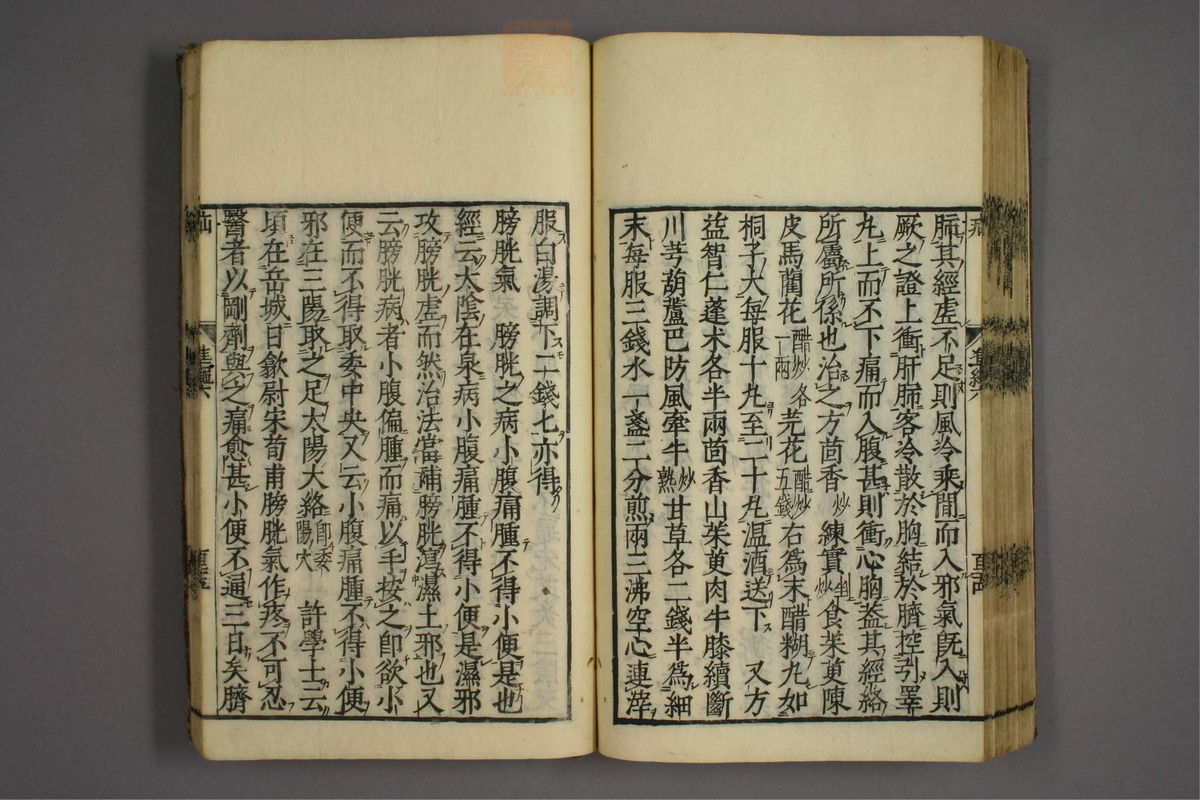 肺其經虚不足則風冷乘間而入邪氣既入則
厥之證上衝肝肺客冷散於胸結於臍控引睪
丸上而不下痛而入腹甚則衝心胸蓋其經絡
所屬所係也治之方茴香炒練實剉炒食茱萸陳
皮馬藺花醋炒各一兩芫花醋炒五錢右為末醋糊丸如
桐子大每服十丸至二十丸温酒送下 又方
益智仁蓬术各半兩茴香山茱萸肉牛膝續斷
川芎葫蘆巴防風牽牛炒熟甘草各二錢半為細
末每服三錢水一盞二分煎兩三沸空心連滓
服白湯調下二錢匕亦得
膀胱氣 膀胱之病小腹痛腫不得小便是也
經云太陰在泉病小腹痛腫不得小便是濕邪
攻膀胱虚而然治法當補膀胱瀉濕土邪也又
云膀胱病者小腹偏腫而痛以手按之卽欲小
便而不得取委中央又云小腹痛腫不得小便
邪在三陽取之足太陽大絡卽委陽穴 許學士云
頃在岳城日歙尉宋荀甫膀胱氣作疼不可忍
醫者以剛劑與之痛愈甚小便不通三日矣臍